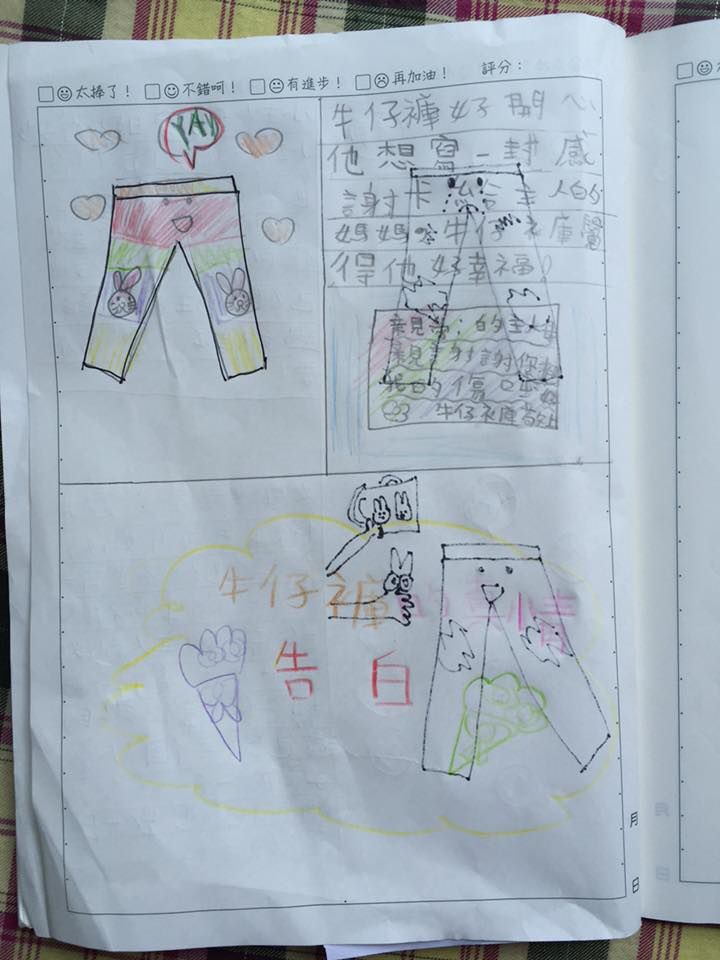 太棒了！ 不錯呵！ 有進步！ 再加油！ 評分：
YAY
牛仔褲好開心
他想寫一封感
謝卡給主人的
媽媽。牛仔褲覺
得他好幸福！
親愛的主人母
親謝謝您把
我的傷口
牛仔褲敬上
牛仔褲的真情
告白
月
日